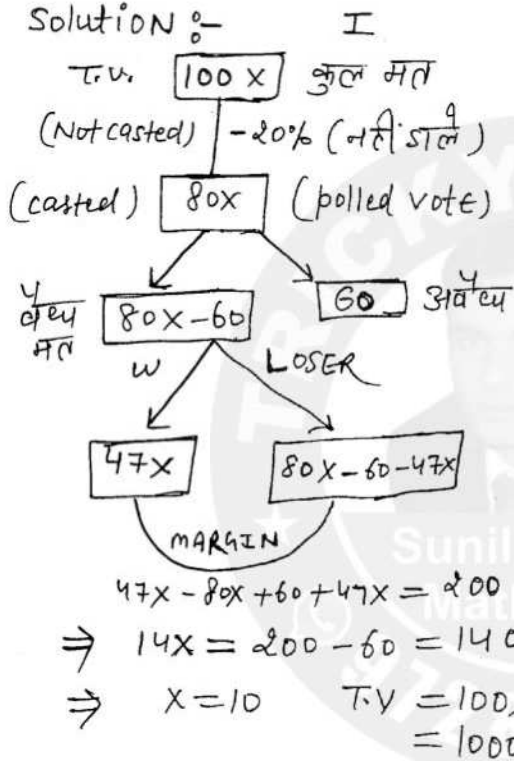 Solution :- I
T.V. 100x कुल मत
(Not casted) -20% (नहीं डाले)
(casted) 80x (polled vote)
वैध मत 80x-60 60 अवैध
W LOSER
47x 80x-60-47x
MARGIN
47x-80x+60+47x=200
⇒ 14x=200-60=140
⇒ x=10 T.V =100,
=1000